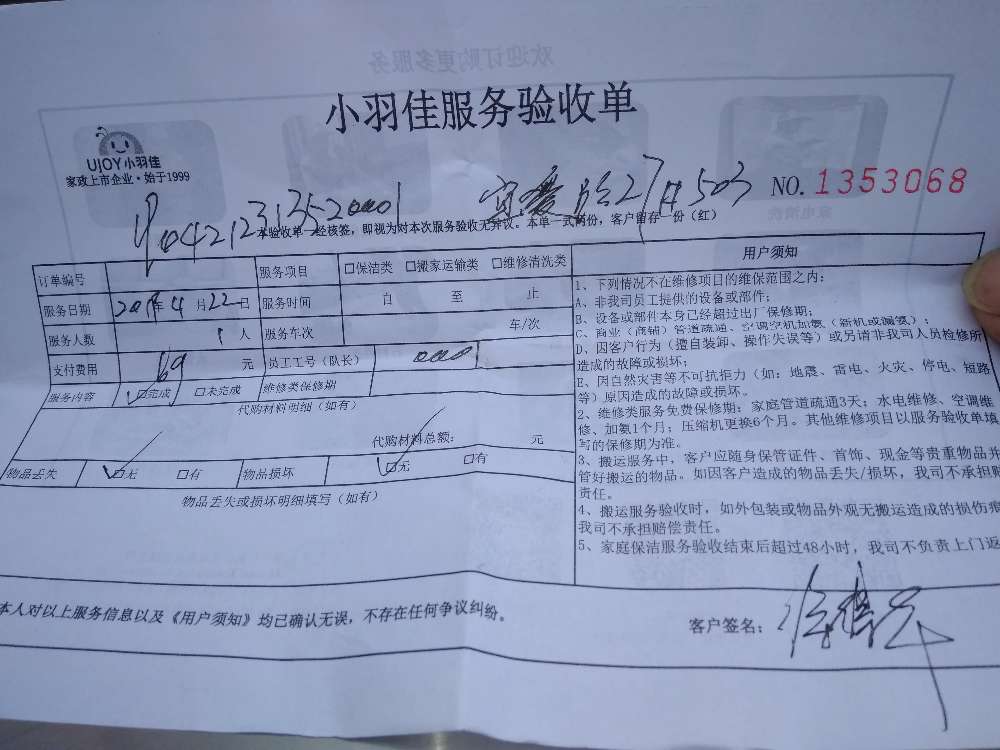 欢迎订购更多服务
小羽佳服务验收单
UJOY小羽佳
家政上市企业·始于1999
NO. 1353068
本验收单一经核签,即视为对本次服务验收无异议。本单一式两份,客户留存一份(红)
订单编号 服务项目 □保洁类 □搬家运输类 □维修清洗类
服务日期 年4月22日 服务时间 自 至 止
服务人数 1人 服务车次 车/次
支付费用 69 元 员工工号(队长)
服务内容 □完成 □未完成 维修类保修期
代购材料明细(如有)
代购材料总额: 元
物品丢失 □无 □有 物品损坏 □无 □有
物品丢失或损坏明细填写(如有)
用户须知
1、下列情况不在维修项目的维保范围之内:
A、非我司员工提供的设备或部件;
B、设备或部件本身已经超过出厂保修期;
C、商业(商铺)管道疏通、空调空机加氨(新机或漏氨);
D、因客户行为(擅自装卸、操作失误等)或另请非我司人员检修所
造成的故障或损坏;
E、因自然灾害等不可抗拒力(如:地震、雷电、火灾、停电、短路
等)原因造成的故障或损坏。
2、维修类服务免费保修期:家庭管道疏通3天;水电维修、空调维
修、加氨1个月;压缩机更换6个月。其他维修项目以服务验收单填
写的保修期为准。
3、搬运服务中,客户应随身保管证件、首饰、现金等贵重物品并
管好搬运的物品。如因客户造成的物品丢失/损坏,我司不承担赔
责任。
4、搬运服务验收时,如外包装或物品外观无搬运造成的损伤痕
我司不承担赔偿责任。
5、家庭保洁服务验收结束后超过48小时,我司不负责上门返
本人对以上服务信息以及《用户须知》均已确认无误,不存在任何争议纠纷。
客户签名: